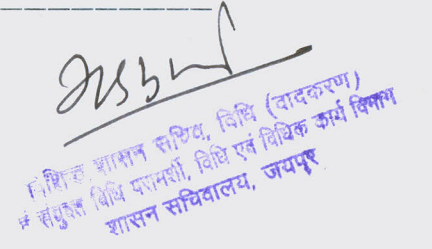 विशिष्ट शासन सचिव, विधि (वादकरण)
एवं संयुक्त विधि परामर्शी, विधि एवं विधिक कार्य विभाग
शासन सचिवालय, जयपुर